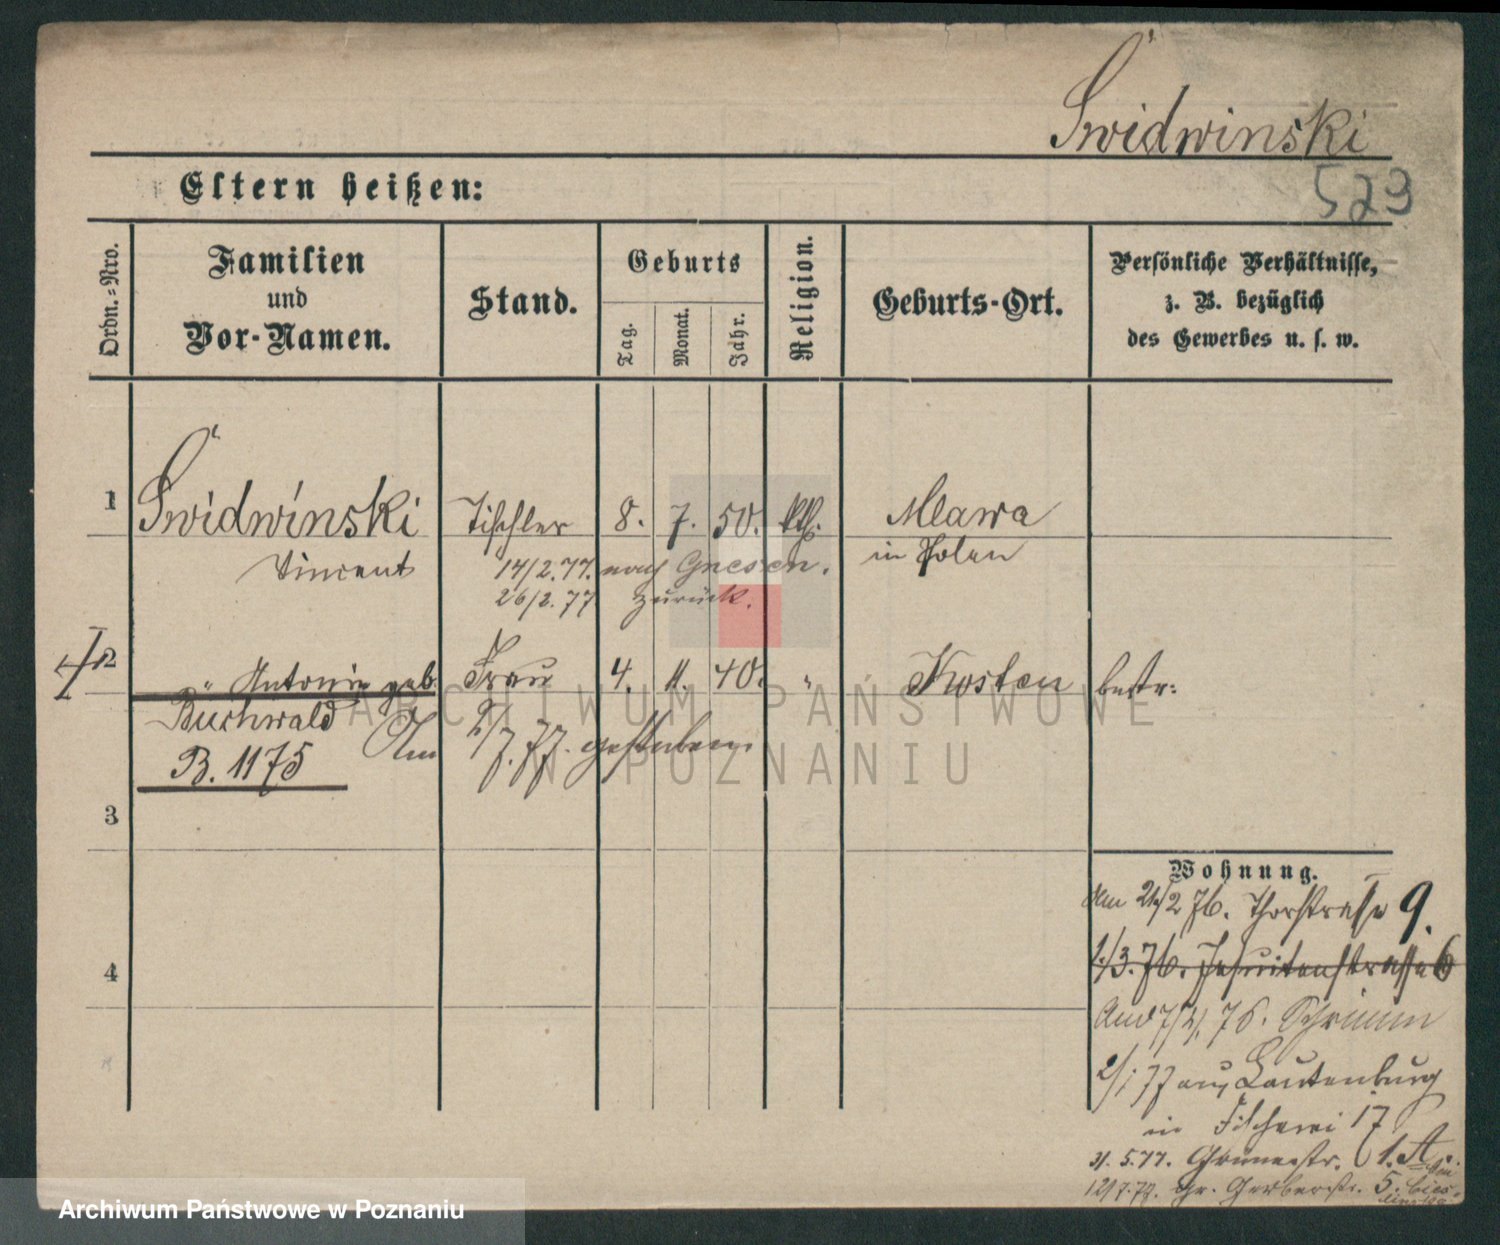 Świdwinski
529
Eltern heißen:
Ordn.-Nro.
Familien
und
Vor-Namen.
Stand.
Geburts
Tag.
Monat.
Jahr.
Religion.
Geburts-Ort.
Persönliche Verhältnisse,
z. B. bezüglich
des Gewerbes u. s. w.
1 Świdwinski Tischler 8. 7. 50. kth. Mlawa
Vincent 14/2.77. nach Gnesen. in Polen
26/2.77 zurück.
2 " Antonie geb. Frau 4. 11. 40. " Kosten bestr:
Buchwald Am 2/7.77. gestorben.
B. 1175
3
4
Wohnung.
Am 21/2 76. Thorstrasse 9.
1/3.76. Jesuitenstrasse 6
And 7/4. 76. Schrimm
2/1 77 aus Lautenburg
in Fischerei 17
31.5.77. Grünestr. 1. A.
12/7.79. Gr. Gerberstr. 5. bei
ARCHIWUM PAŃSTWOWE
W POZNANIU
Archiwum Państwowe w Poznaniu